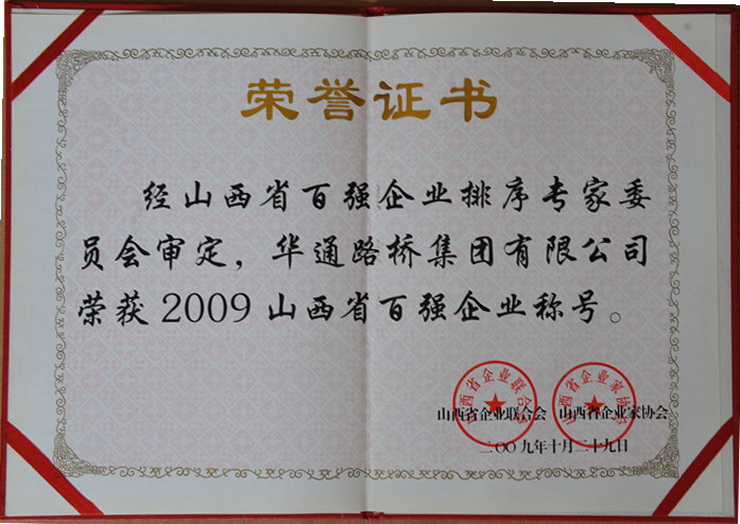 荣誉证书
经山西省百强企业排序专家委
员会审定，华通路桥集团有限公司
荣获2009山西省百强企业称号。
山西省企业联合会 山西省企业家协会
二〇〇九年十月二十九日
山西省企业联合会
山西省企业家协会